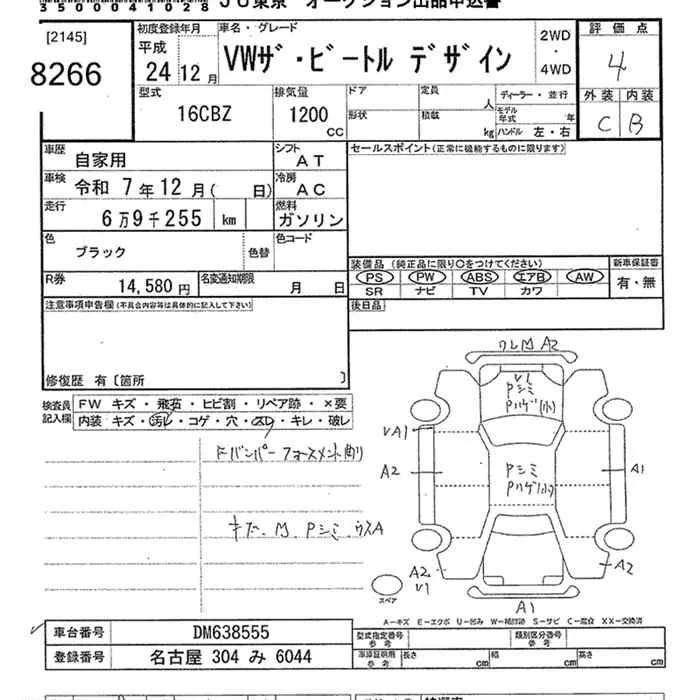 35000410 28 JU東京 オークション出品申込書
[2145]
8266
初度登録年月
平成
24 12 月
車名・グレード
VWザ・ビートル デザイン
2WD
・
4WD
評価点
4
外装 内装
C B
型式
16CBZ
排気量
1200
CC
ドア
形状
定員
人
積載
kg
ディーラー・並行
モデル年式 年
ハンドル 左・右
車歴
自家用
シフト
AT
車検
令和 7 年 12 月( 日)
冷房
AC
走行
6 万 9 千 255 km
燃料
ガソリン
色
ブラック
色替
色コード
R券
14,580 円
名変通知期限
月 日
セールスポイント(正常に機能するものに限ります)
装備品 (純正品に限り○をつけてください)
PS PW ABS エアB AW
SR ナビ TV カワ
新車保証書
有・無
後日品
注意事項申告欄(不具合内容等は具体的に記入して下さい)
修復歴 有〔箇所 〕
検査員
記入欄
FW キズ・飛石・ヒビ割・リペア跡・×要
内装 キズ・汚レ・コゲ・穴・スレ・キレ・破レ
Fバンパー フォースメント削り
キズ、M、Pシミ、ウスA
ワレ M A2
V1
Pシミ
Pハゲ(小)
VA1
A2
Pシミ
Pハゲ(小)
A1
A2
V1
A2
スペア
A1
A-キズ E-エクボ U-凹み W-補修跡 S-サビ C-腐食 XX-交換済
車台番号
DM638555
登録番号
名古屋 304 み 6044
型式指定番号
参考
類別区分番号
参考
車庫証明用
参考
長さ cm
幅 cm
高さ cm